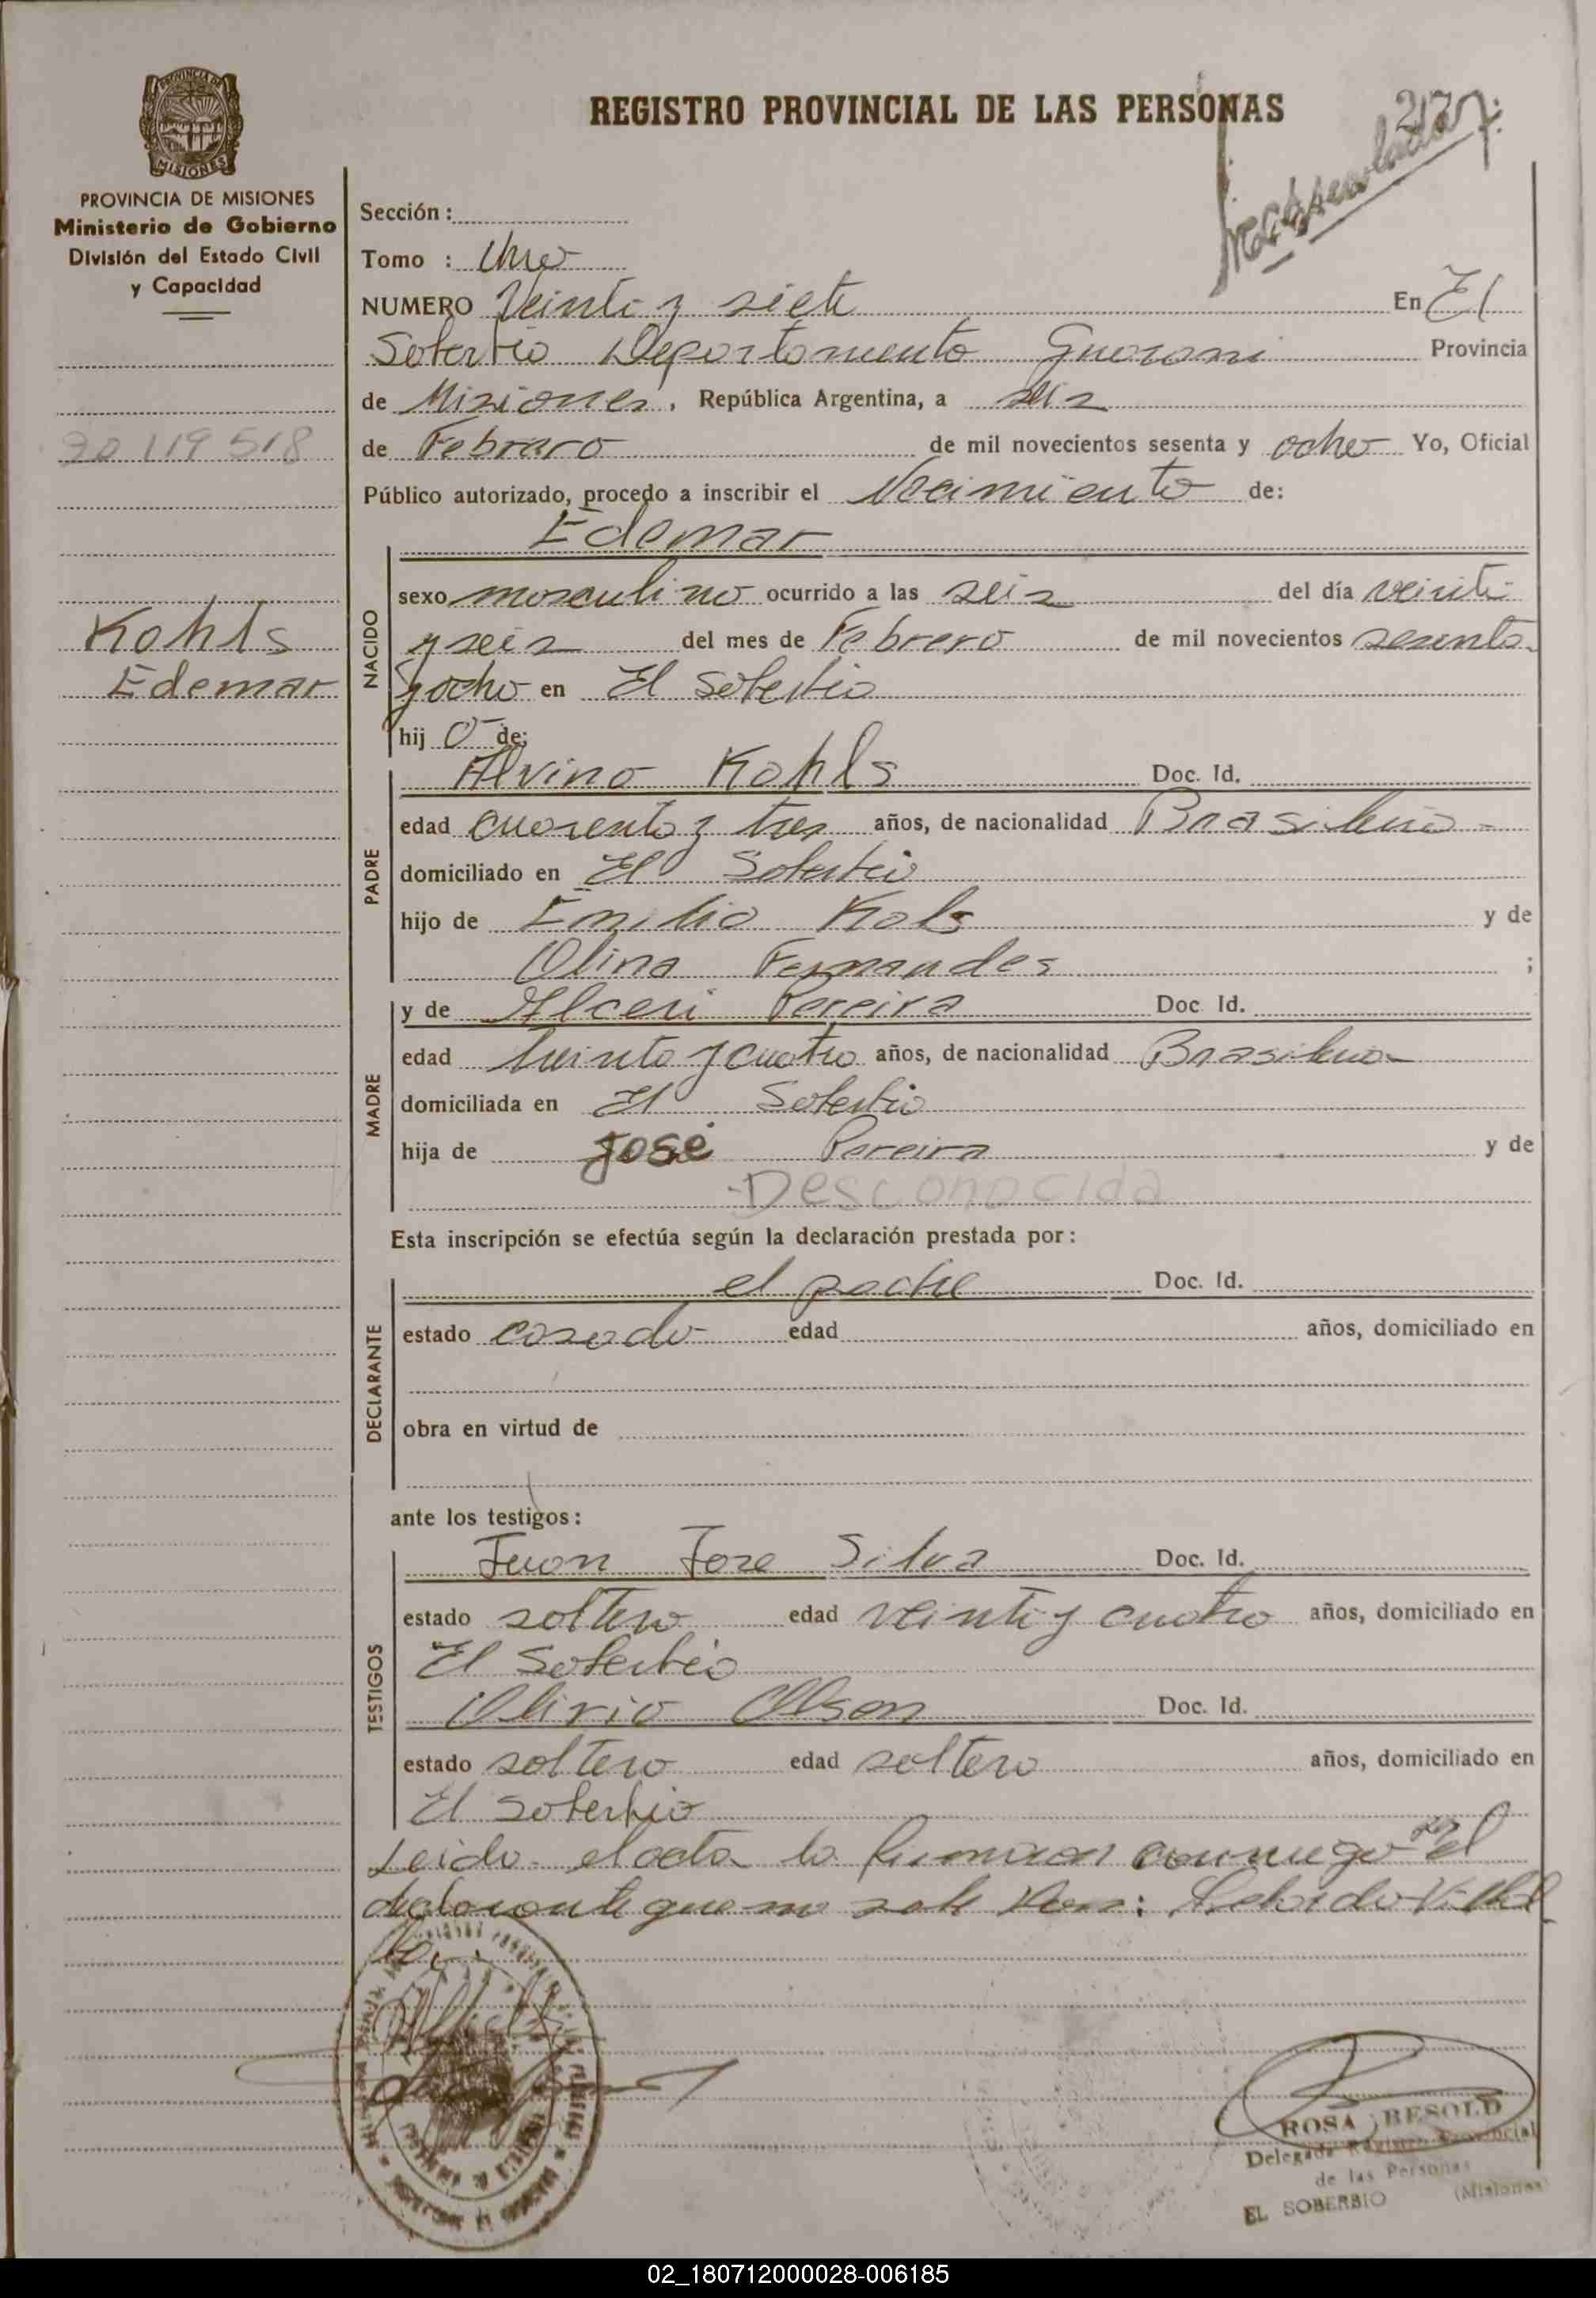 PROVINCIA DE
MISIONES
REGISTRO PROVINCIAL DE LAS PERSONAS
27
PROVINCIA DE MISIONES
Ministerio de Gobierno
División del Estado Civil
y Capacidad
Sección :
Tomo : Uno
NUMERO Veinti y siete En El
Soberbio Departamento Guarani Provincia
de Misiones, República Argentina, a seis
20 119 518
de Febraro de mil novecientos sesenta y ocho Yo, Oficial
Público autorizado, procedo a inscribir el Nacimiento de:
Edemar
NACIDO
sexo masculino ocurrido a las seis del día veinti
Kohls
y seis del mes de Febrero de mil novecientos sesenta
Edemar
y ocho en El Soberbio
hij o de:
PADRE
Alvino Kohls Doc. Id.
edad cuarenta y tres años, de nacionalidad Brasileña
domiciliado en El Soberbio
hijo de Emilio Kols y de
Olina Fernandes ;
MADRE
y de Alceri Pereira Doc. Id.
edad treinta y cuatro años, de nacionalidad Brasilena
domiciliada en El Soberbio
hija de José Pereira y de
Desconocida
Esta inscripción se efectúa según la declaración prestada por :
DECLARANTE
el padre Doc. Id.
estado casado edad años, domiciliado en
obra en virtud de
ante los testigos :
TESTIGOS
Juan Jose Silva Doc. Id.
estado soltero edad veinti y cuatro años, domiciliado en
El Soberbio
Olirio Olson Doc. Id.
estado soltero edad soltero años, domiciliado en
El Soberbio
Leido el acta la firman conmigo el
declarante que no sabe
ROSA BESOLD
Delegada Registro Provincial
de las Personas
EL SOBERBIO (Misiones)
02_180712000028-006185